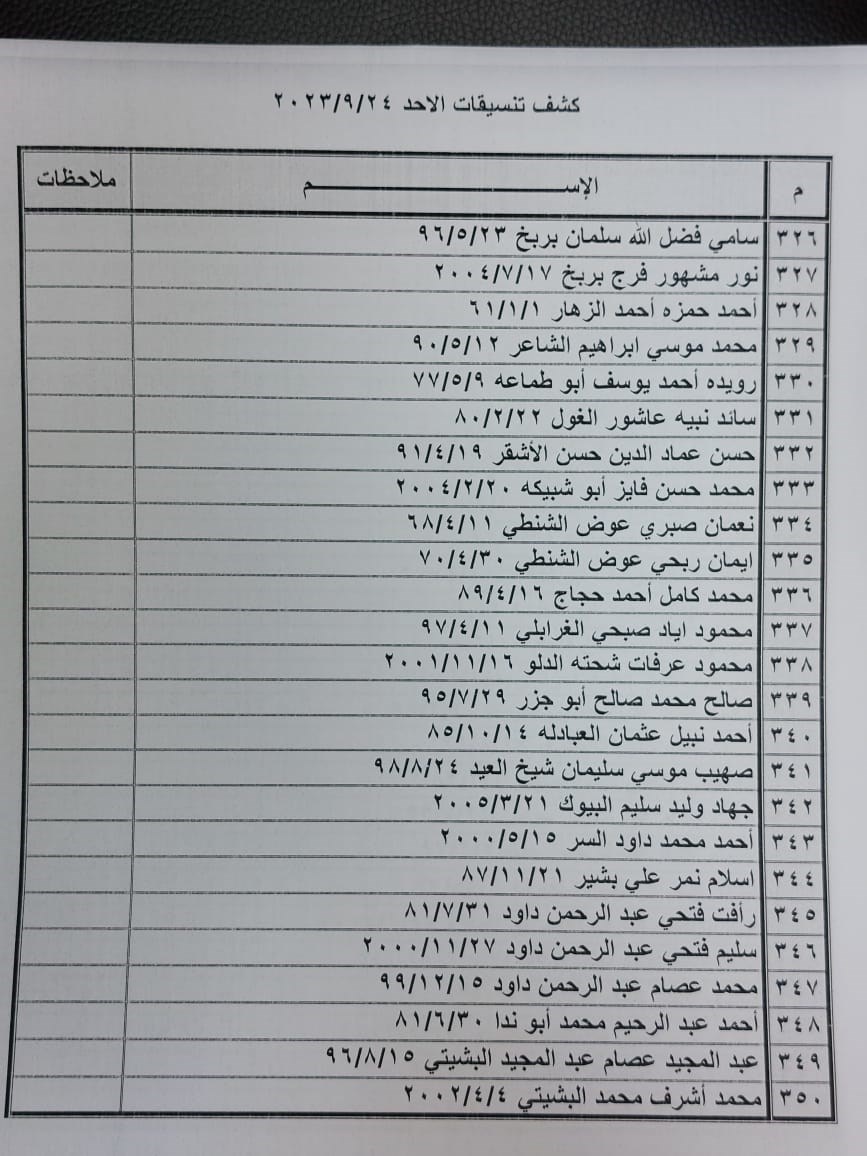 كشف تنسيقات الاحد ٢٠٢٣/٩/٢٤
م الإســـــــم ملاحظات
٣٢٦ سامي فضل الله سلمان بربخ ٩٦/٥/٢٣
٣٢٧ نور مشهور فرج بربخ ٢٠٠٤/٧/١٧
٣٢٨ أحمد حمزه أحمد الزهار ٦١/١/١
٣٢٩ محمد موسي ابراهيم الشاعر ٩٠/٥/١٢
٣٣٠ رويده أحمد يوسف أبو طماعه ٧٧/٥/٩
٣٣١ سائد نبيه عاشور الغول ٨٠/٢/٢٢
٣٣٢ حسن عماد الدين حسن الأشقر ٩١/٤/١٩
٣٣٣ محمد حسن فايز أبو شبيكه ٢٠٠٤/٢/٢٠
٣٣٤ نعمان صبري عوض الشنطي ٦٨/٤/١١
٣٣٥ ايمان ربحي عوض الشنطي ٧٠/٤/٣٠
٣٣٦ محمد كامل أحمد حجاج ٨٩/٤/١٦
٣٣٧ محمود اياد صبحي الغرابلي ٩٧/٤/١١
٣٣٨ محمود عرفات شحته الدلو ٢٠٠١/١١/١٦
٣٣٩ صالح محمد صالح أبو جزر ٩٥/٧/٢٩
٣٤٠ أحمد نبيل عثمان العبادله ٨٥/١٠/١٤
٣٤١ صهيب موسي سليمان شيخ العيد ٩٨/٨/٢٤
٣٤٢ جهاد وليد سليم البيوك ٢٠٠٥/٣/٢١
٣٤٣ أحمد محمد داود السر ٢٠٠٠/٥/١٥
٣٤٤ اسلام نمر علي بشير ٨٧/١١/٢١
٣٤٥ رأفت فتحي عبد الرحمن داود ٨١/٧/٣١
٣٤٦ سليم فتحي عبد الرحمن داود ٢٠٠٠/١١/٢٧
٣٤٧ محمد عصام عبد الرحمن داود ٩٩/١٢/١٥
٣٤٨ أحمد عبد الرحيم محمد أبو ندا ٨١/٦/٣٠
٣٤٩ عبد المجيد عصام عبد المجيد البشيتي ٩٦/٨/١٥
٣٥٠ محمد أشرف محمد البشيتي ٢٠٠٢/٤/٤